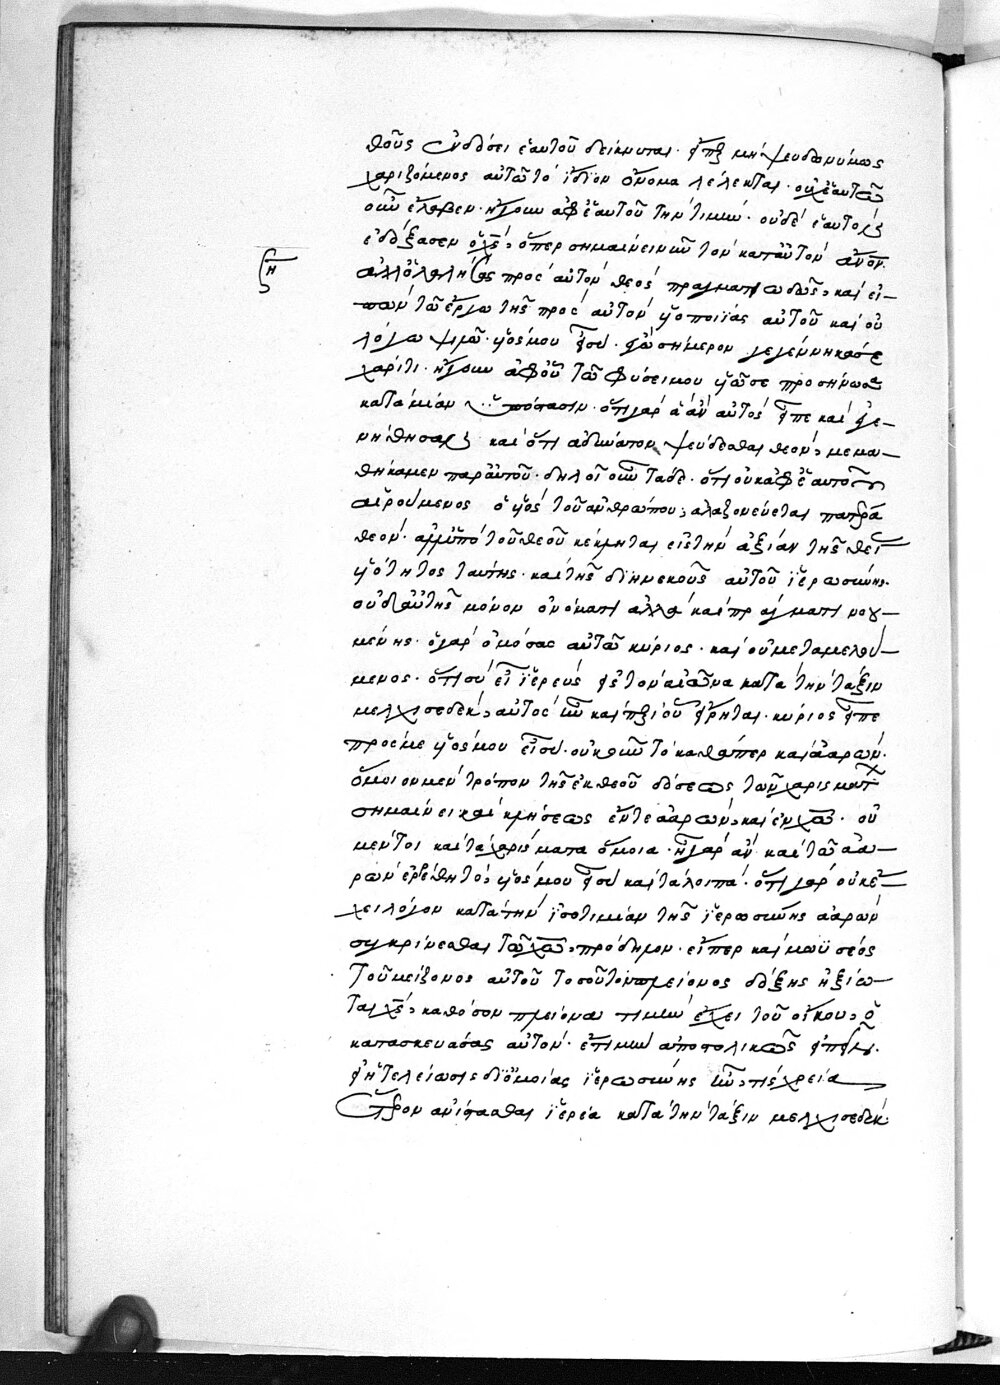 θοῦς ἐνδόσει ἑαυτοῦ δείκνυται· μὴ ψευδωνύμως
χαριζόμενος αὐτῶ τὸ ἴδιον ὄνομα λέλεκται· οὐχ ἑαυτῶ
οὖν ἔλαβεν· ἤγουν ἀφ ἑαυτοῦ τὴν τιμήν· οὐδὲ ἑαυτὸν
ἐδόξασεν ὁ χς· ὅπερ σημαίνει νῦν τὸν κατ αὐτὸν ἄνον·
ἀλλ ὁ λαλήσας πρὸς αὐτὸν θεὸς πραγματιωδῶς· καὶ εἰ-
πὼν τῶ ἔργω τῆς πρὸς αὐτὸν υἱοποιΐας αὐτοῦ καὶ οὐ
λόγω ψιλῶ· υἱός μου εἶ σύ· ἐγὼ σήμερον γεγέννηκά σε
χάριτι· ἤγουν ἀφ οὗ τῶ φύσει μου υἱῶ σε προσήνωσα
κατὰ μίαν ὑπόστασιν· ὅτι γὰρ αὐτὸς εἶπε καὶ ἐγε-
νήθησαν καὶ ὅτι ἀδύνατον ψεύδεσθαι θεόν· μεμα-
θήκαμεν παρ αὐτοῦ· δηλοῖ οὖν ταδε· ὅτι οὐκ ἀφ ἑαυτοῦ
αἱρούμενος ὁ υἱὸς τοῦ ἀνθρώπου· ἀλαζονεύεται
θεόν· ἀλλ ὑπὸ τοῦ θεοῦ κέκληται εἰς τὴν ἀξίαν τῆς θεί
υἱότητος ταύτης· καὶ τῆς διηνεκοῦς αὐτοῦ ἱερωσύνης·
οὐδ αὐτῆς μόνον ὀνόματι ἀλλὰ καὶ πράγματι νοου-
μένης· ὁ γὰρ ὀμόσας αὐτῶ κύριος· καὶ οὐ μεταμελού-
μενος· ὅτι σὺ εἶ ἱερεὺς εἰς τὸν αἰῶνα κατὰ τὴν τάξιν
μελχισεδέκ· αὐτὸς ἦν καὶ περὶ οὗ εἴρηται· κύριος εἶπε
πρός με υἱός μου εἶ σύ· οὐκοῦν τὸ καθάπερ καὶ ἀαρών·
ὅμοιον μὲν τρόπον τῆς ἐκ θεοῦ δόσεως τῶν χαρισμάτ
σημαίνει καὶ κλήσεως ἔν τε ἀαρών· καὶ ἐν χω· οὐ
μέντοι καὶ τὰ χαρίσματα ὅμοια· ἢ γὰρ ἂν καὶ τῶ ἀα-
ρὼν ἐρρέθη τό· υἱός μου εἶ σύ καὶ τὰ λοιπά· ὅτι γὰρ οὐκ ἔ-
χει λόγον κατὰ τὴν ἰσοτιμίαν τῆς ἱερωσύνης ἀαρὼν
συγκρίνεσθαι τῶ χω· πρόδηλον· εἴπερ καὶ μωϋσέος
τοῦ μείζονος αὐτοῦ τοσοῦτον πλείονος δόξης ἠξίω-
ται χς· καθόσον πλείονα τιμὴν ἔχει τοῦ οἴκου· ὁ
κατασκευάσας αὐτόν· ἔτι μὴν ἀποστολικῶς
εἰ ἡ τελείωσις δι ὁμοίας ἱερωσύνης ἦν· τίς χρεία
ἕτερον ἀνίστασθαι ἱερέα κατὰ τὴν τάξιν μελχισεδέκ·